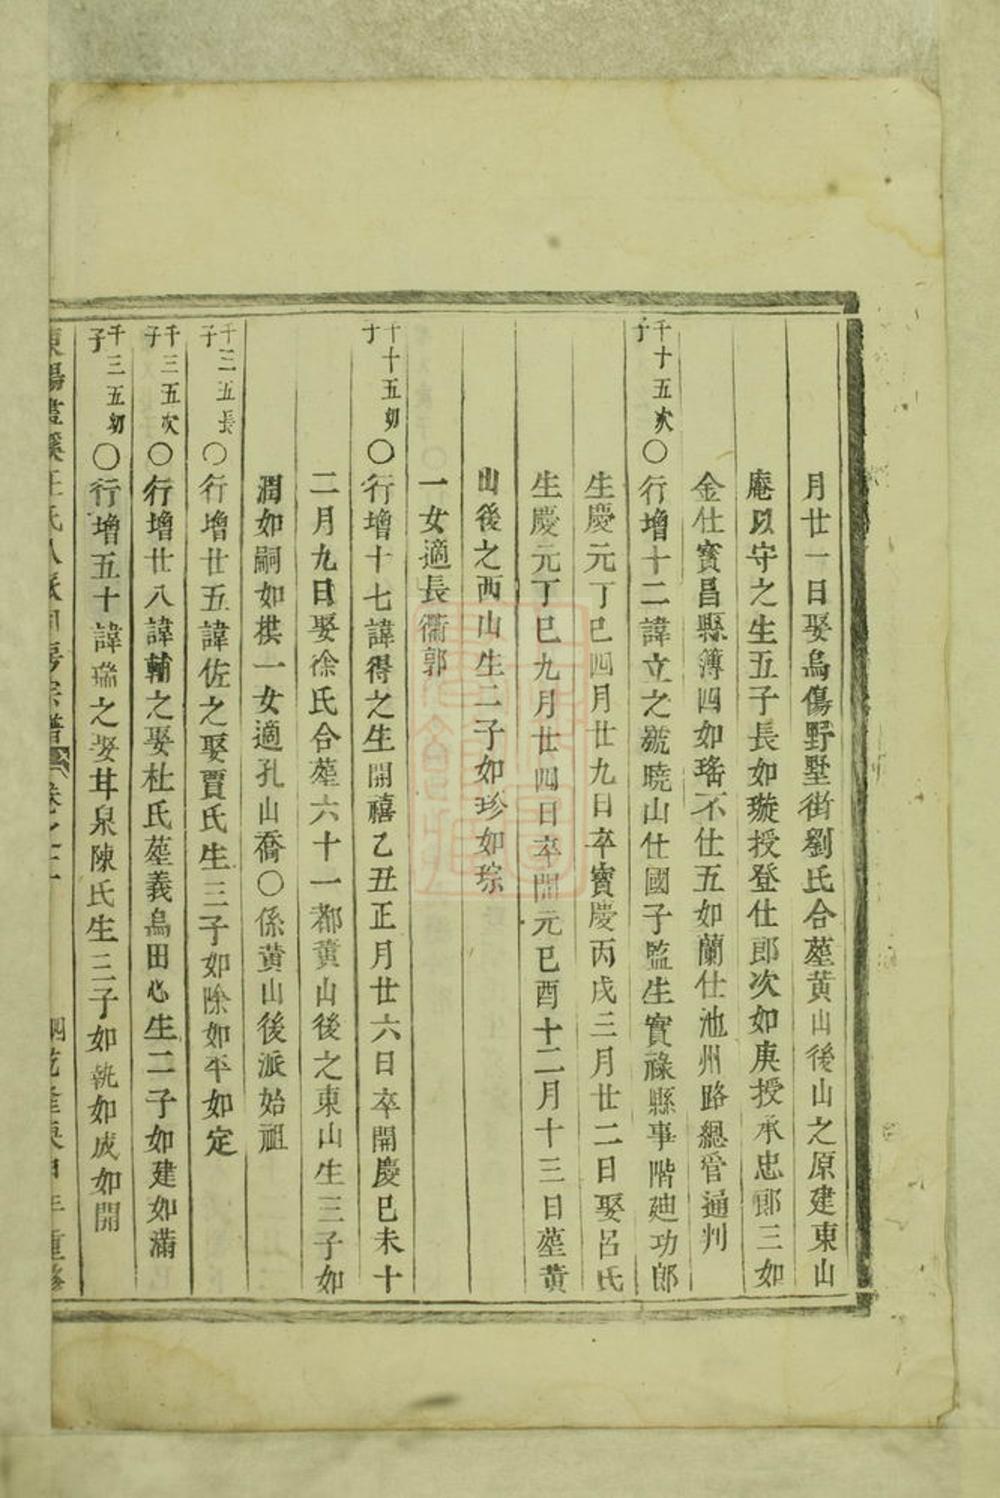 月廿一日娶烏傷野墅街劉氏合塟黄山後山之原建東山
庵以守之生五子長如璇授登仕郎次如庚授承忠郎三如
金仕寳昌縣簿四如瑤不仕五如蘭仕池州路總管通判
千十五次子○行增十二諱立之號曉山仕國子監生實祿縣事階廸功郎
生慶元丁巳四月廿九日卒寳慶丙戌三月廿二日娶呂氏
生慶元丁巳九月廿四日卒開元已酉十二月十三日塟黄
山後之西山生二子如珍如琮
一女適長衢郭
千十五幼子○行增十七諱得之生開禧乙丑正月廿六日卒開慶巳未十
二月九日娶徐氏合塟六十一都黄山後之東山生三子如
潤如嗣如棋一女適孔山喬○係黄山後派始祖
千三五長子○行增廿五諱佐之娶賈氏生三子如除如平如定
千三五次子○行增廿八諱輔之娶杜氏塟義烏田心生二子如建如滿
千三五幼子○行增五十諱瑞之娶甘泉陳氏生三子如執如成如開